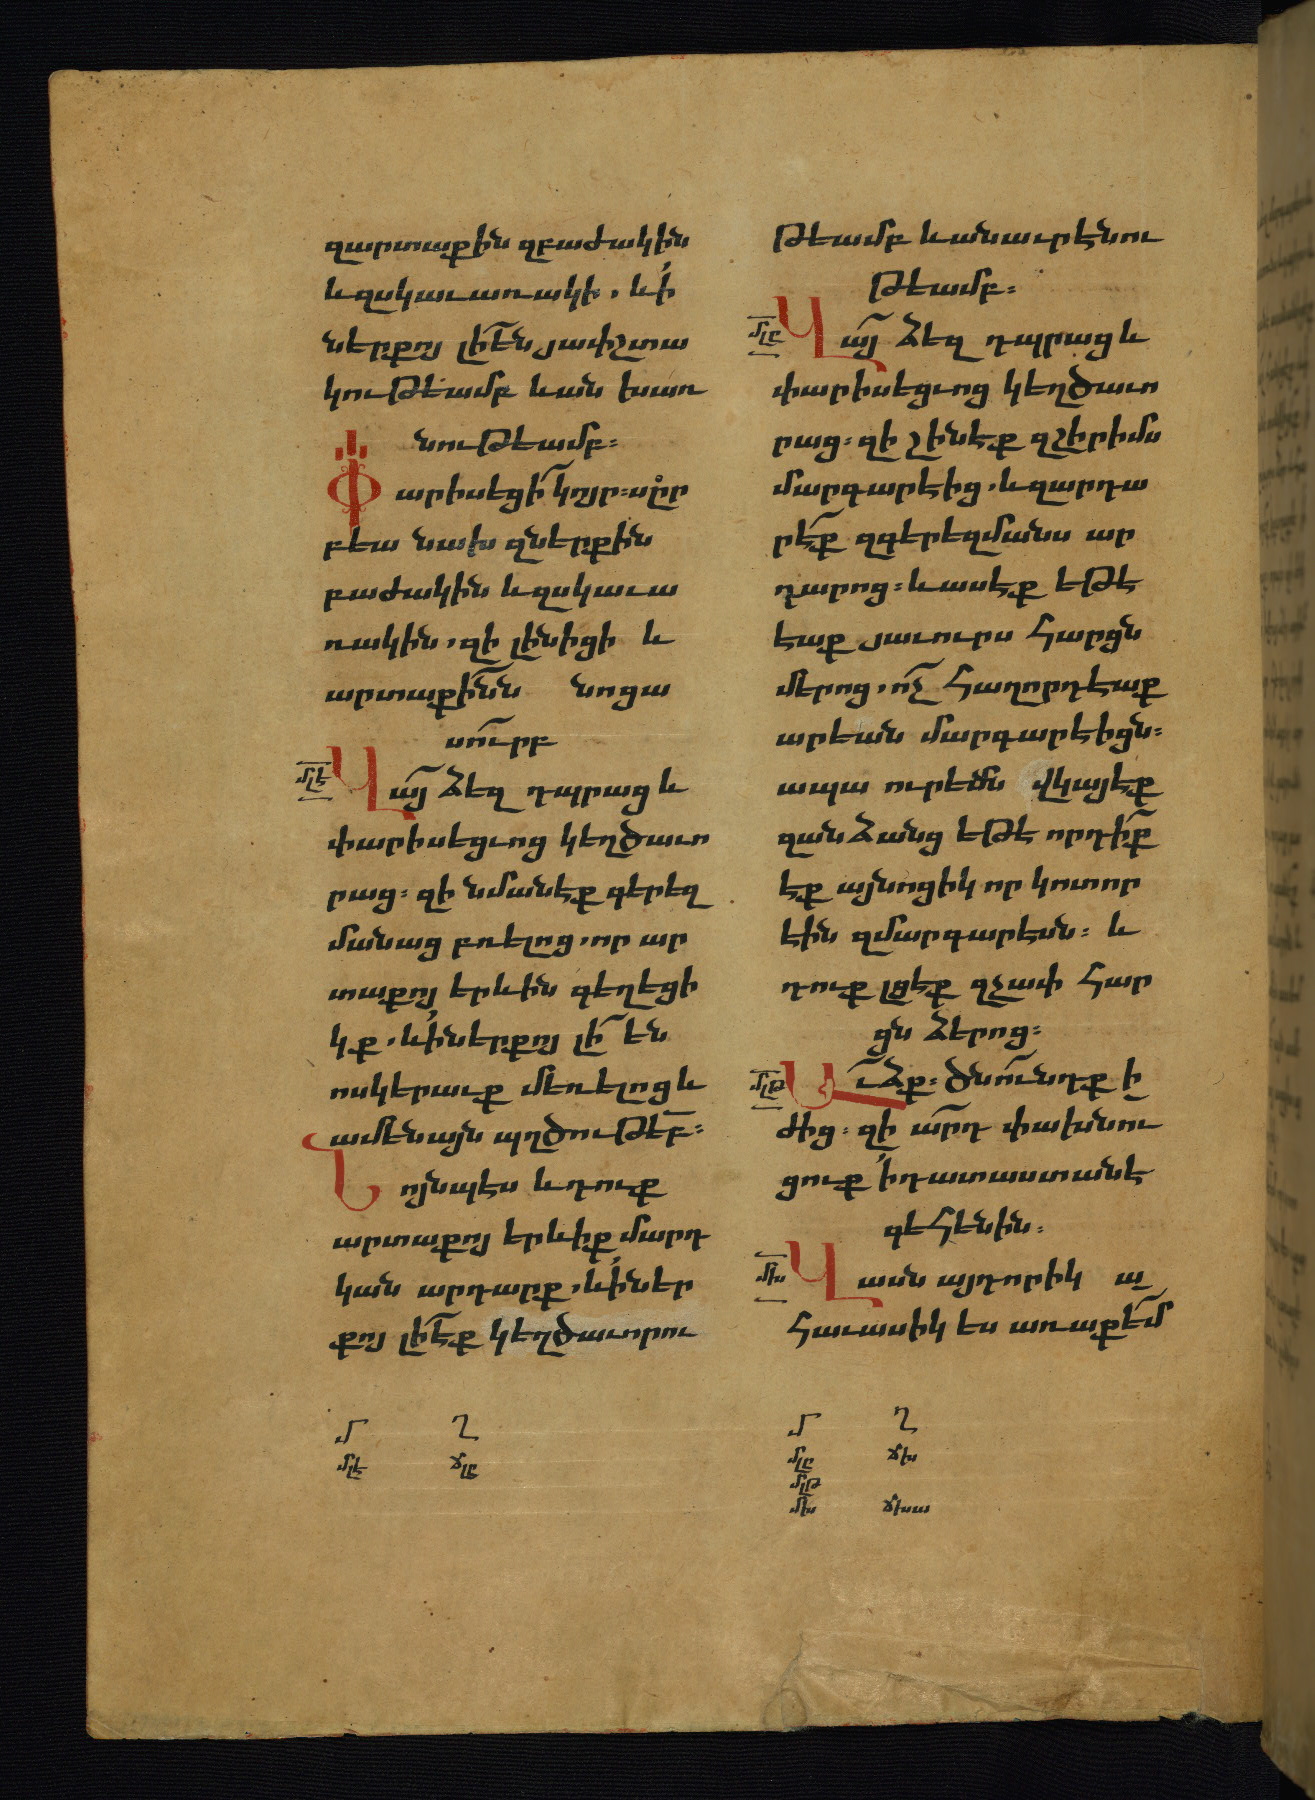 զարտաքին զբաժակին
և զսկաւառակի. և ՛ի
ներքոյ լի՟ են յափշտա
կութեամբ և ան խառ
նութեամբ։
Փարիսեցի՟ կոյր։ սըր
բեա նախ զներքին
բաժակին և զսկաւա
ռակին, զի լինիցի և
արտաքի՟նն նոցա
սո՟ւրբ
մլէ Վա՟յ ձեզ դպրաց և
փարիսեցւոց կեղծաւո
րաց։ զի նմանէք գերեզ
մանաց բռելոց, որ ար
տաքոյ երևին գեղեցի
կք, և ՛ի ներքոյ լի՟ են
ոսկերաւք մեռելոց և
ամենայն պղծութե՟բ։
Նոյնպէս և դուք
արտաքոյ երևիք մարդ
կան արդարք, և ՛ի ներ
քոյ լի՟ էք կեղծաւորու
մ ղ
մլէ ճլը
թեամբ և անաւրէնու
թեամբ։
մլը Վա՟յ ձեզ դպրաց և
փարիսեցւոց կեղծաւո
րաց։ զի շինէք զշիրիմս
մարգարէից, և զարդա
րէ՟ք զգերեզմանս ար
դարոց։ և ասէք եթէ
էաք յաւուրս հարցն
մերոց, ո՟չ հաղորդէաք
արեան մարգարէիցն։
ապա ուրեմն վկայէք
զանձանց եթէ որդի՟ք
էք այնոցիկ որ կոտոր
էին զմարգարէսն։ և
դուք լցէք զչափ հար
ցն ձերոց։
մլթ Աւձք։ ծնո՟ւնդք ի
ժից։ զի ա՟րդ փախնու
ցուք ՛ի դատաստանէ
գեհենին։
մխ Վասն այդորիկ ա
հաւասիկ ես առաքե՟մ
մ ղ
մլը ճխ
մլթ
մխ ճխա